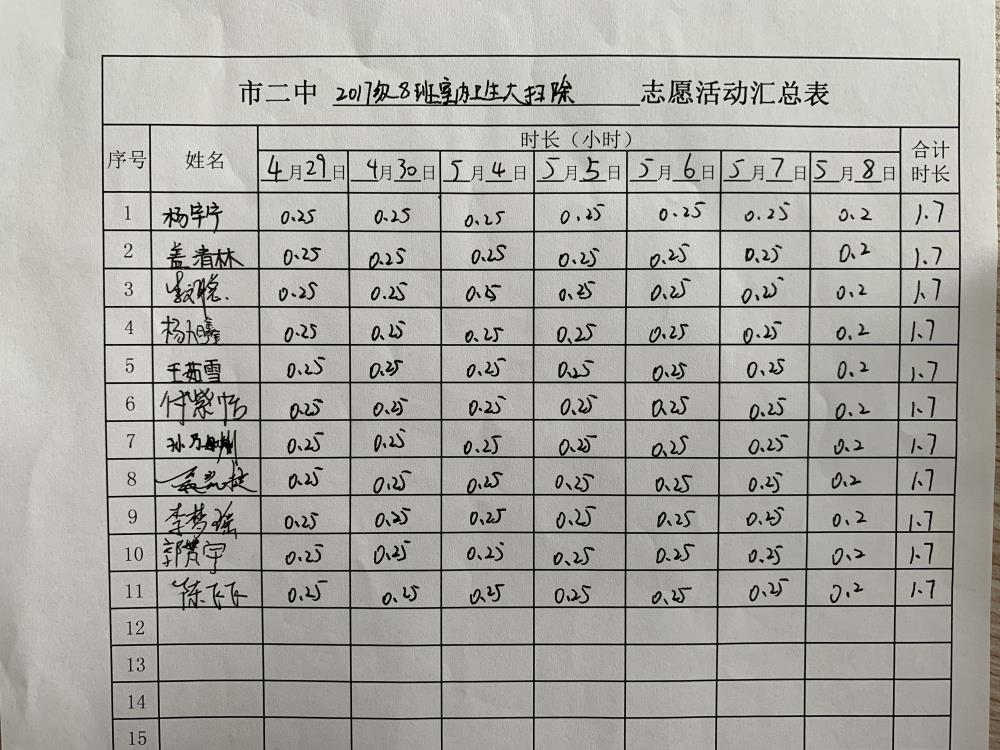 市二中 2017级8班室内卫生大扫除 志愿活动汇总表
序号 姓名 时长（小时） 合计时长
4月29日 4月30日 5月4日 5月5日 5月6日 5月7日 5月8日
1 杨宇宁 0.25 0.25 0.25 0.25 0.25 0.25 0.2 1.7
2 盖清林 0.25 0.25 0.25 0.25 0.25 0.25 0.2 1.7
3 0.25 0.25 0.25 0.25 0.25 0.25 0.2 1.7
4 杨旭鑫 0.25 0.25 0.25 0.25 0.25 0.25 0.2 1.7
5 王茹雪 0.25 0.25 0.25 0.25 0.25 0.25 0.2 1.7
6 付紫恬 0.25 0.25 0.25 0.25 0.25 0.25 0.2 1.7
7 0.25 0.25 0.25 0.25 0.25 0.25 0.2 1.7
8 0.25 0.25 0.25 0.25 0.25 0.25 0.2 1.7
9 李梦瑶 0.25 0.25 0.25 0.25 0.25 0.25 0.2 1.7
10 0.25 0.25 0.25 0.25 0.25 0.25 0.2 1.7
11 陈飞飞 0.25 0.25 0.25 0.25 0.25 0.25 0.2 1.7
12
13
14
15